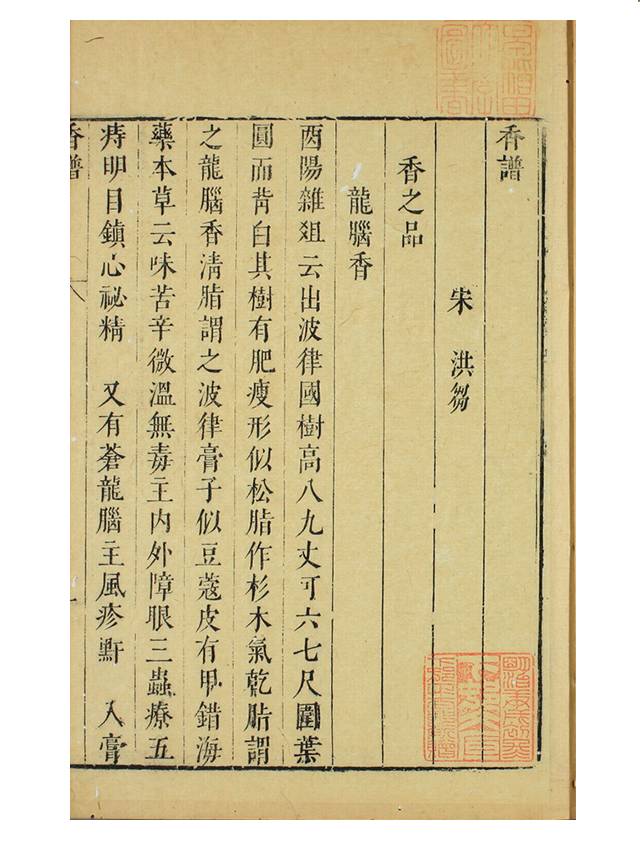 香譜
宋 洪芻
香之品
龍腦香
酉陽雜俎云出波律國樹高八九丈可六七尺圍葉
圓而背白其樹有肥瘦形似松脂作杉木氣乾脂謂
之龍腦香淸脂謂之波律膏子似豆蔻皮有甲錯海
藥本草云味苦辛微溫無毒主內外障眼三蟲療五
痔明目鎮心祕精 又有蒼龍腦主風疹䵟 入膏
香譜
一